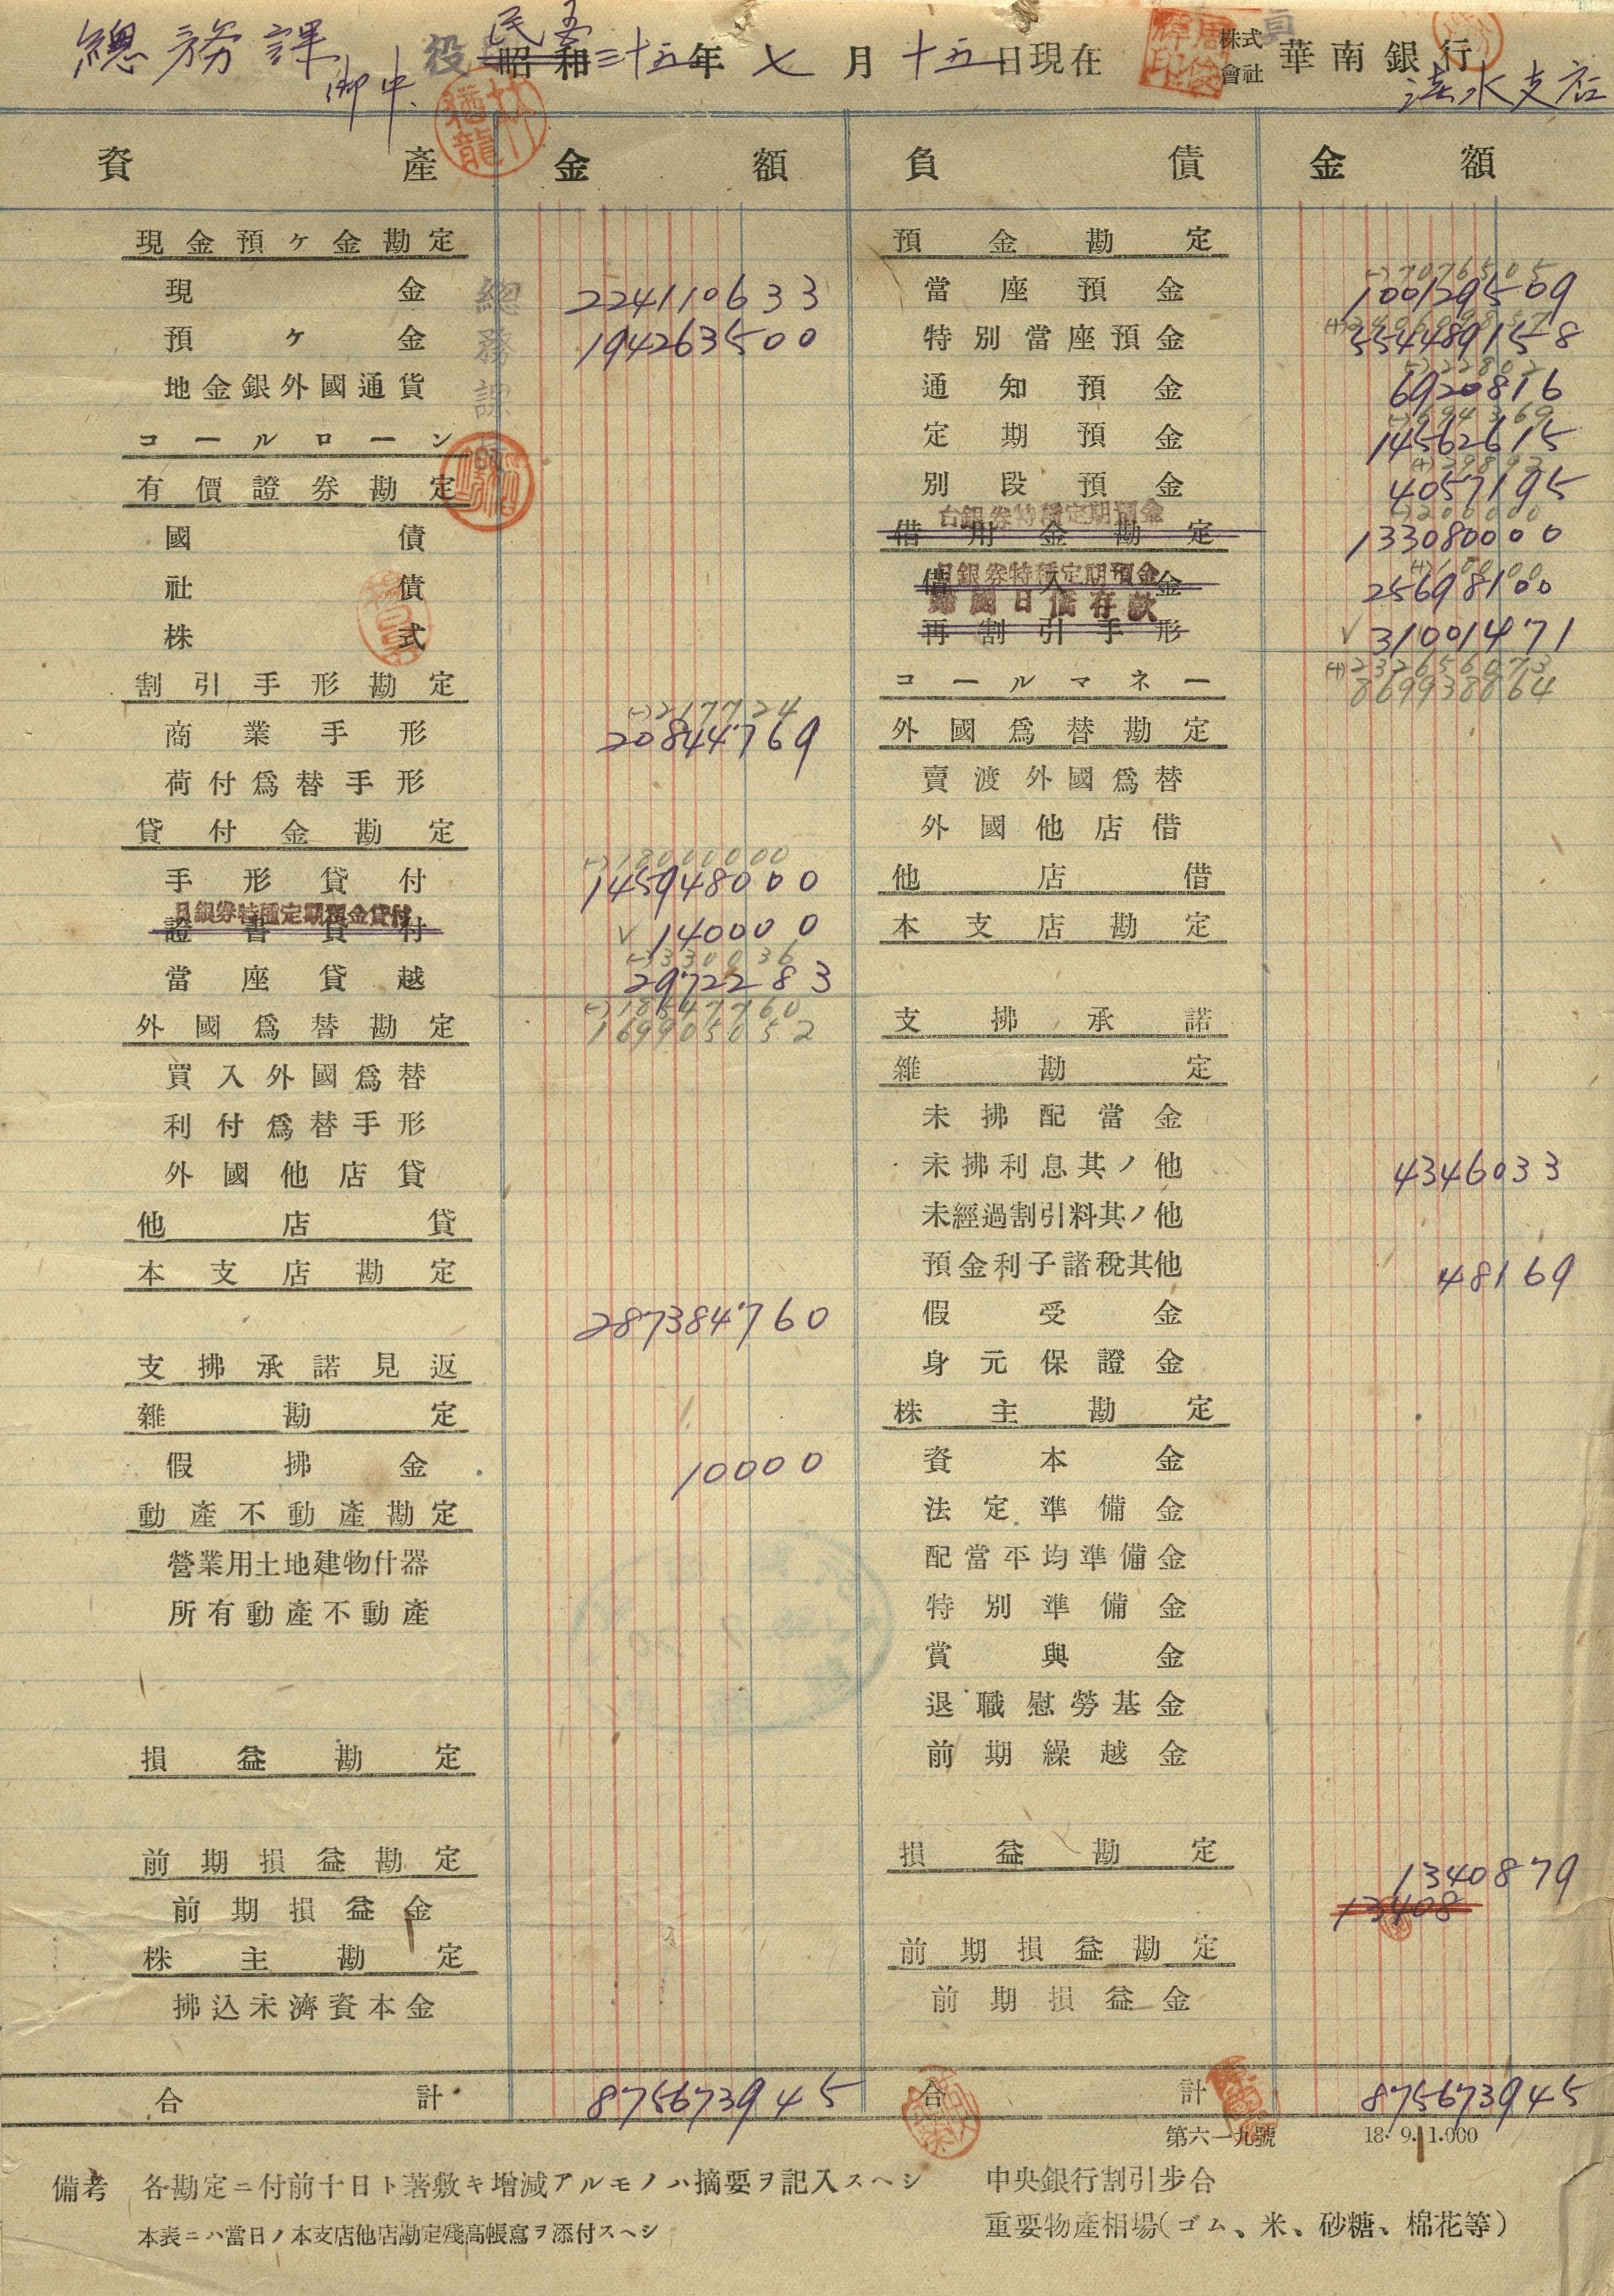 總務課
御中
民國
昭和三十五年七月十五日現在
株式會社 華南銀行
淡水支店
資產 金額 負債 金額
現金預ヶ金勘定 預金勘定
現金 224110633 當座預金 100129509
預ヶ金 194263500 特別當座預金 554489158
地金銀外國通貨 通知預金 6920816
コールローン 定期預金 14562615
有價證券勘定 別段預金 4057195
台銀券特種定期預金
國債 借用金勘定 133080000
日銀券特種定期預金
社債 借入金 25698100
歸國日僑存款
株式 再割引手形 31001471
(+)232656073
割引手形勘定 コールマネー 869938864
(-)2177724
商業手形 20844769 外國爲替勘定
荷付爲替手形 賣渡外國爲替
貸付金勘定 外國他店借
(-)18000000
手形貸付 145948000 他店借
日銀券特種定期預金貸付
證書貸付 140000 本支店勘定
(-)330036
當座貸越 2972283
(-)18547760
外國爲替勘定 169905052 支拂承諾
買入外國爲替 雜勘定
利付爲替手形 未拂配當金
外國他店貸 未拂利息其ノ他 4346033
他店貸 未經過割引料其ノ他
本支店勘定 預金利子諸稅其他 48169
287384760 假受金
支拂承諾見返 身元保證金
雜勘定 株主勘定
假拂金 10000 資本金
動產不動產勘定 法定準備金
營業用土地建物什器 配當平均準備金
所有動產不動產 特別準備金
賞與金
退職慰勞基金
損益勘定 前期繰越金
前期損益勘定 損益勘定 1340879
前期損益金 13408
株主勘定 前期損益勘定
拂込未濟資本金 前期損益金
合計 875673945 合計 875673945
第六一九號 18.9.1.000
備考 各勘定ニ付前十日ト著敷キ增減アルモノハ摘要ヲ記入スヘシ 中央銀行割引步合
本表ニハ當日ノ本支店他店勘定殘高帳寫ヲ添付スヘシ 重要物產相場(ゴム、米、砂糖、棉花等)